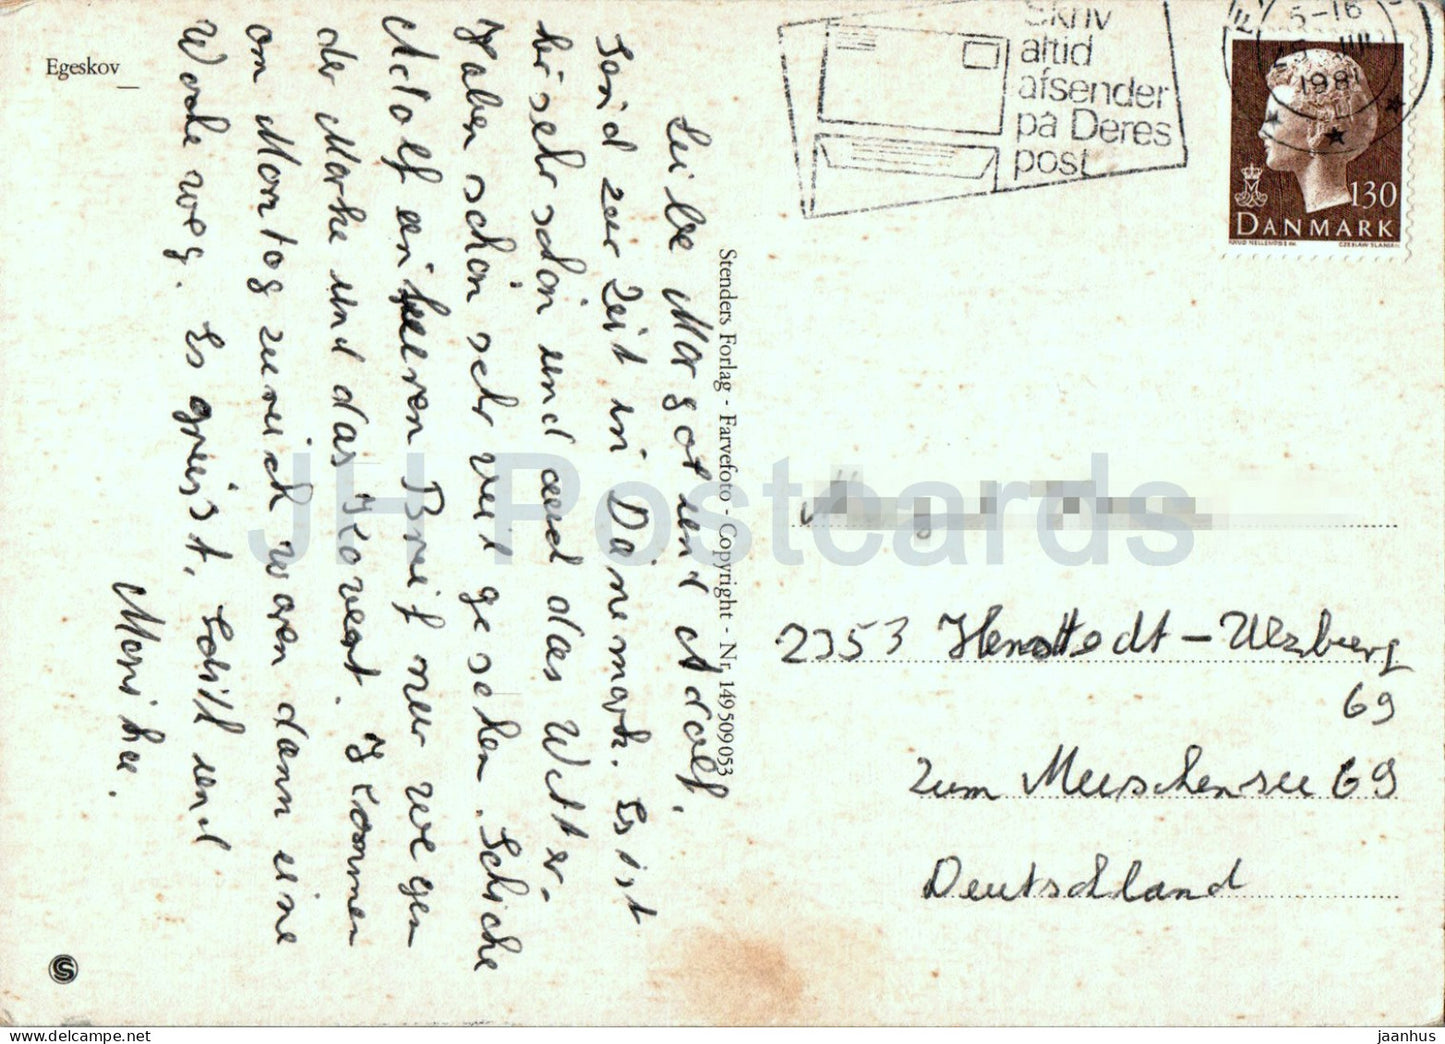 Egeskov
Leibe Margot und Adolf,
Sind zur Zeit in Dänemark. Es ist
hir sehr schön und auch das Wetter-
Haben schon sehr viel gesehen. Schicke
Adolf ein leeren Breif nur wegen
der Marke und das Kovert. Kommen
am Montag zurück waren dann eine
Woche weg. Es grüsst, Lötll und
Monika.
Stenders Forlag - Farvefoto - Copyright - Nr. 149509053
Skriv
altid
afsender
på Deres
post
5-16
1981
130
DANMARK
CZESLAW SLANIA
2353 Henstedt-Ulzburg
69
zum Meeschensee 69
Deutschland
JH Postcards
jaanhus